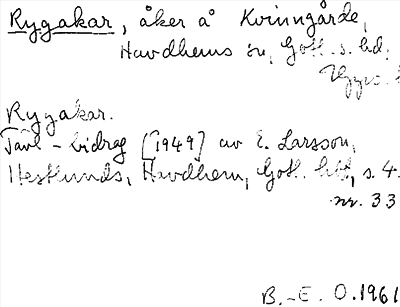 Rygakar, åker å Kvinngårde,
Havdhems sn, Gotl. s. hd.

Rygakar.
Tävl-bidrag [1949] av E. Larsson,
Hestlunds, Havdhem, Gotl. s. 4.
nr. 33
B.-E. O. 1961